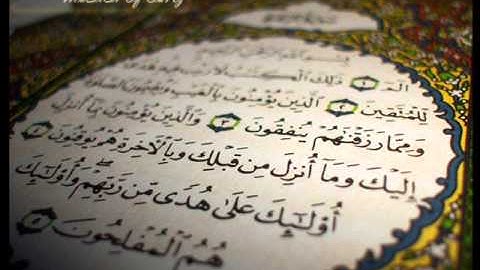 الٓمٓ ١ ذَٰلِكَ ٱلْكِتَٰبُ لَا رَيْبَ
لِّلْمُتَّقِينَ ٢ ٱلَّذِينَ يُؤْمِنُونَ بِٱلْغَيْبِ وَيُقِيمُونَ ٱلصَّلَوٰةَ
وَمِمَّا رَزَقْنَٰهُمْ يُنفِقُونَ ٣ وَٱلَّذِينَ يُؤْمِنُونَ بِمَآ أُنزِلَ
إِلَيْكَ وَمَآ أُنزِلَ مِن قَبْلِكَ وَبِٱلْءَاخِرَةِ هُمْ يُوقِنُونَ ٤
أُو۟لَٰٓئِكَ عَلَىٰ هُدًى مِّن رَّبِّهِمْ ۖ وَأُو۟لَٰٓئِكَ
هُمُ ٱلْمُفْلِحُونَ ٥